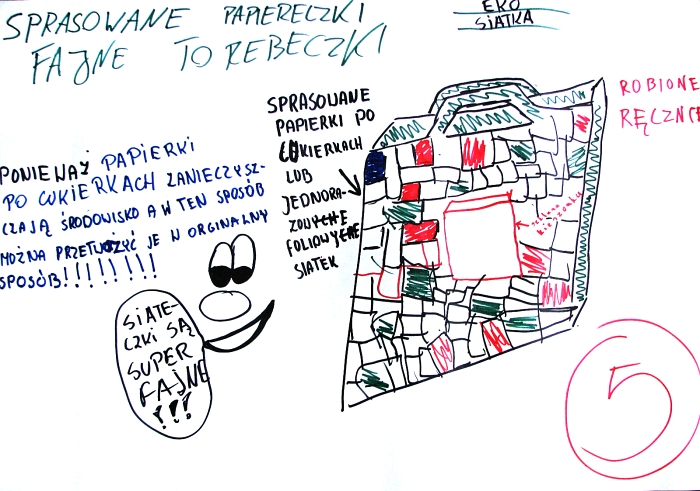 SPRASOWANE PAPIERECZKI
FAJNE TOREBECZKI
EKO
SIATKA
ROBIONE
RĘCZNIE
SPRASOWANE
PAPIERKI PO
CUKIERKACH
LUB
JEDNORA-
ZOWYCH
FOLIOWYCH
SIATEK
PONIEWAŻ PAPIERKI
PO CUKIERKACH ZANIECZYSZ-
CZAJĄ ŚRODOWISKO A W TEN SPOSÓB
MOŻNA PRZETWOŻYĆ JE W ORGINALNY
SPOSÓB!!!!!!!!
SIATE-
CZKI SĄ
SUPER
FAJNE
!!!
5